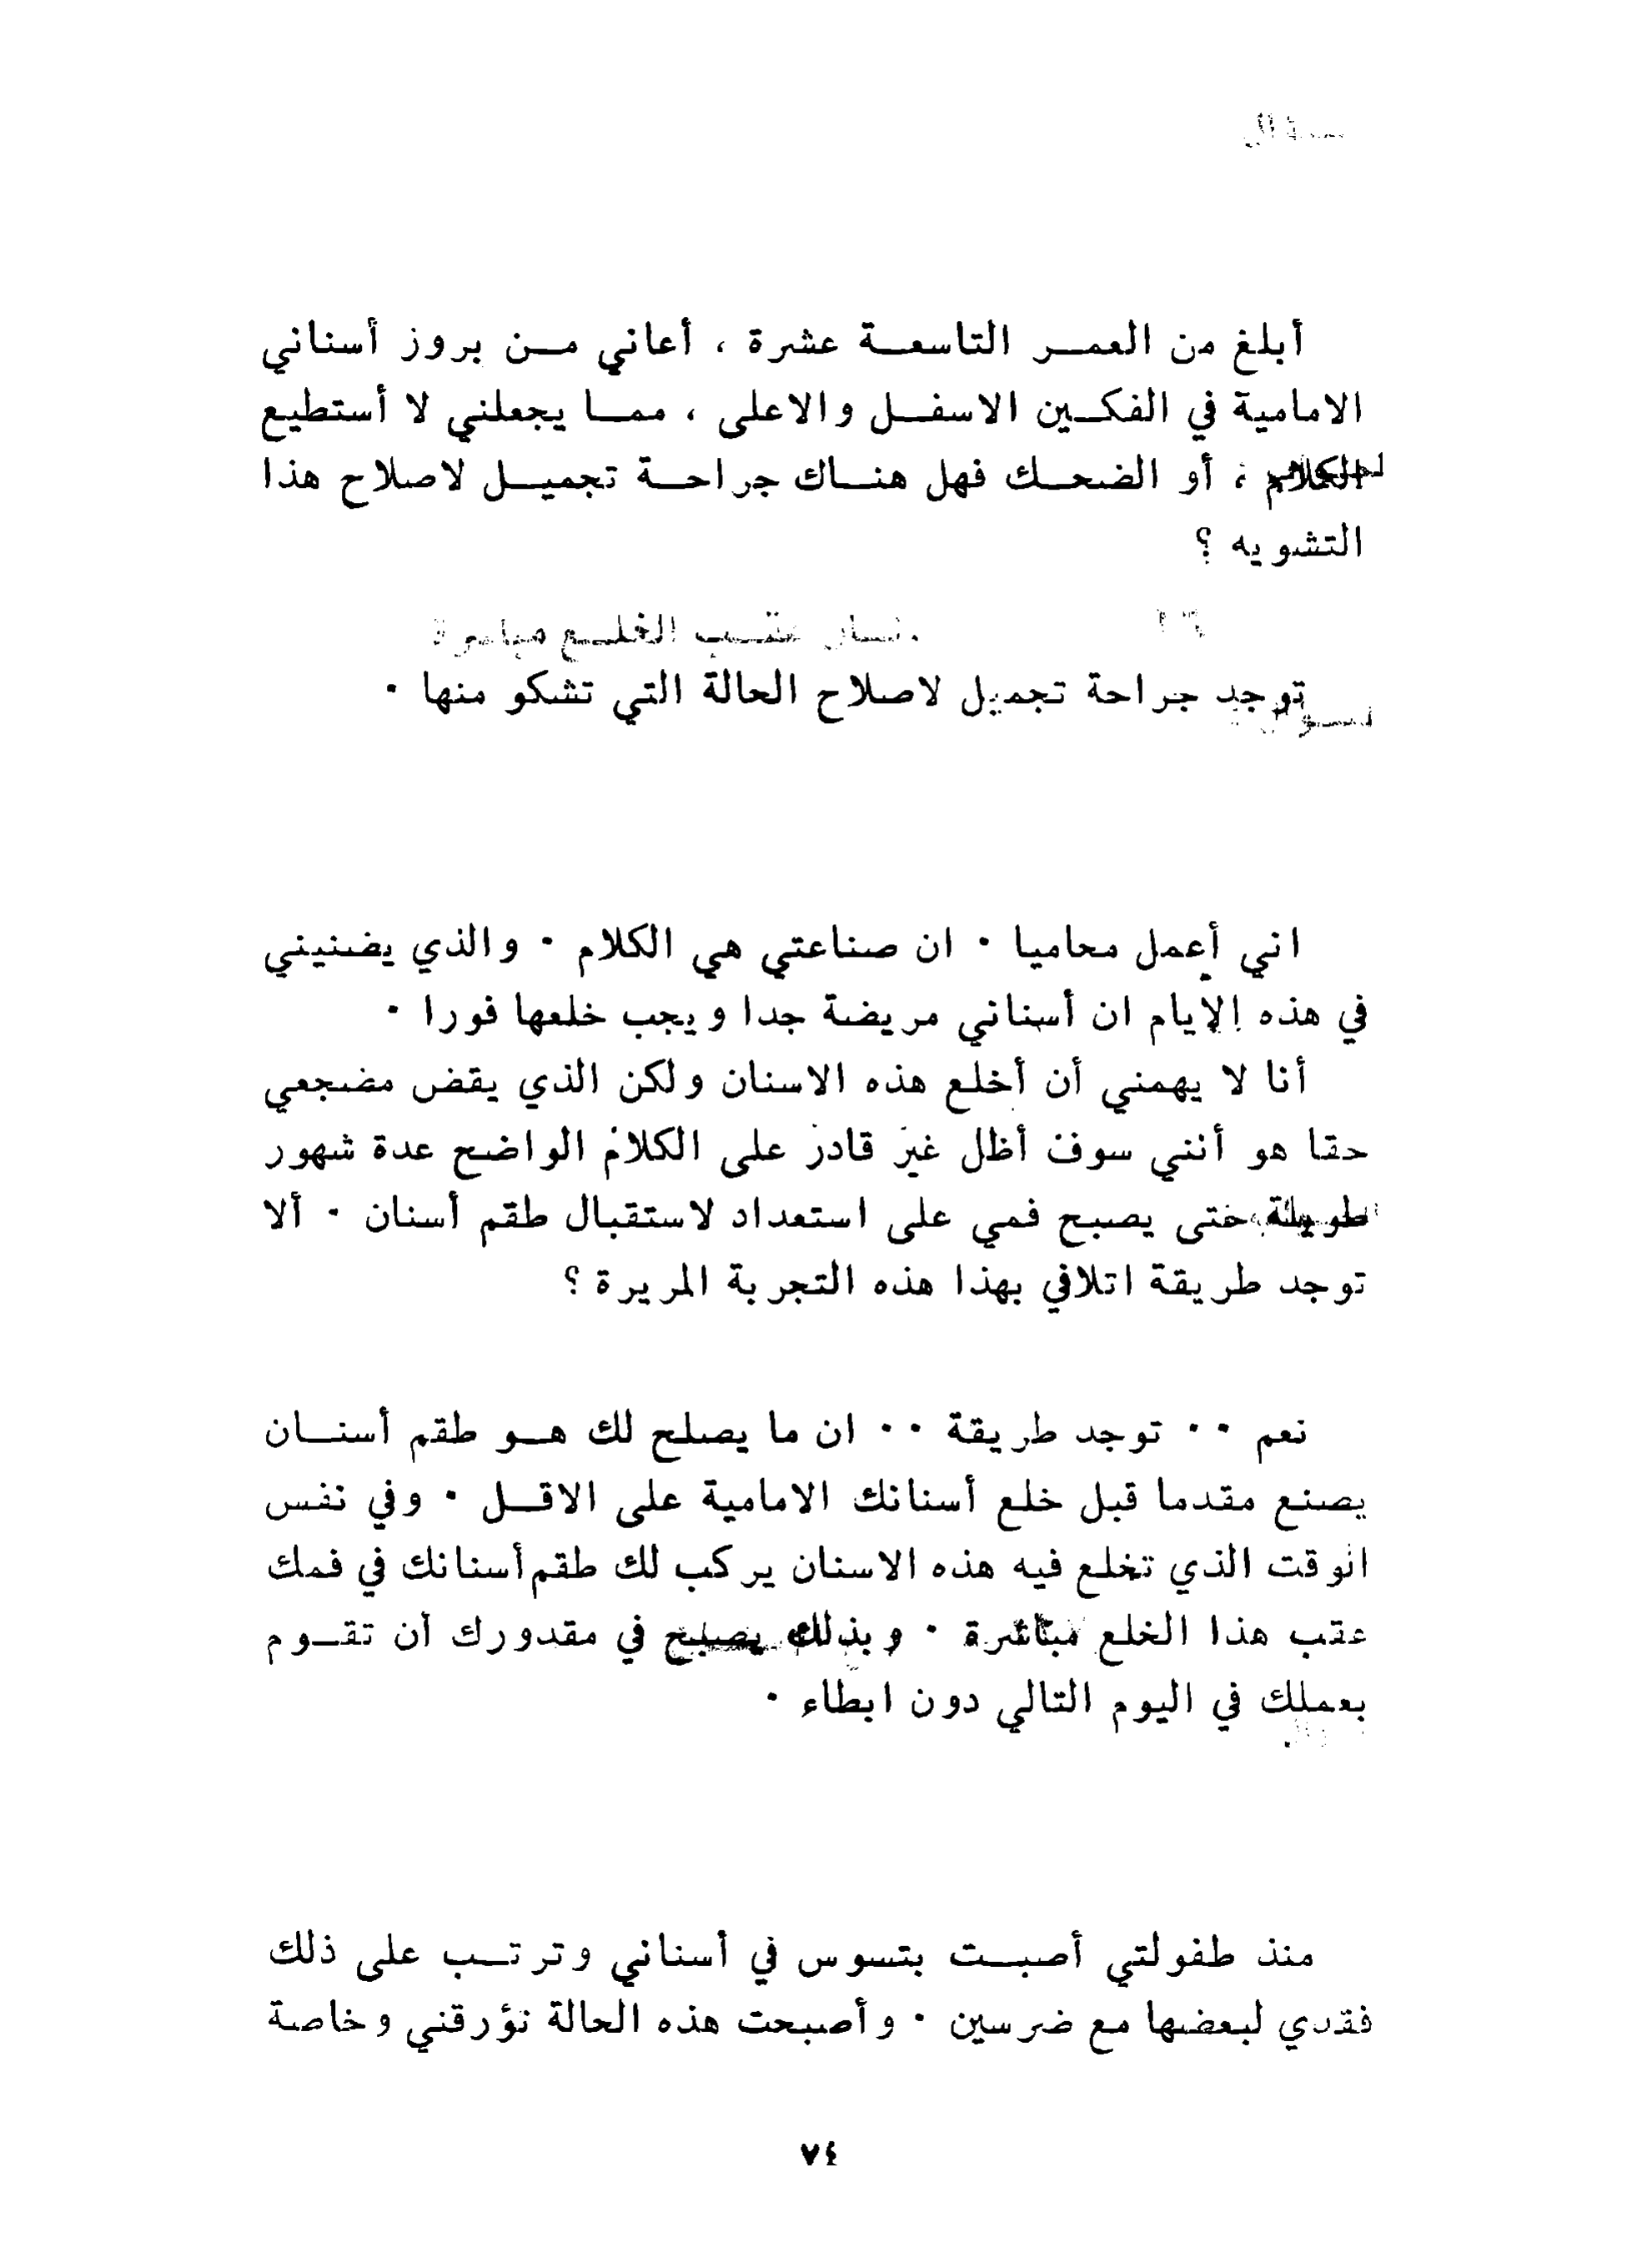 أبلغ من العمر التاسعة عشرة ، أعاني من بروز أسناني
الامامية في الفكين الاسفل والاعلى ، مما يجعلني لا أستطيع
الكلام ، أو الضحك فهل هناك جراحة تجميل لاصلاح هذا
التشويه ؟
عقب الخلع مباشرة
توجد جراحة تجميل لاصلاح الحالة التي تشكو منها ٠
اني أعمل محاميا ٠ ان صناعتي هي الكلام ٠ والذي يضنيني
في هذه الايام ان أسناني مريضة جدا ويجب خلعها فورا ٠
أنا لا يهمني أن أخلع هذه الاسنان ولكن الذي يقض مضجعي
حقا هو أنني سوف أظل غير قادر على الكلام الواضح عدة شهور
طويلة حتى يصبح فمي على استعداد لاستقبال طقم أسنان ٠ ألا
توجد طريقة اتلافي بهذا هذه التجربة المريرة ؟
نعم ٠٠ توجد طريقة ٠٠ ان ما يصلح لك هو طقم أسنان
يصنع مقدما قبل خلع أسنانك الامامية على الاقل ٠ وفي نفس
الوقت الذي تخلع فيه هذه الاسنان يركب لك طقم أسنانك في فمك
عقب هذا الخلع مباشرة ٠ وبذلك يصبح في مقدورك أن تقوم
بعملك في اليوم التالي دون ابطاء ٠
منذ طفولتي أصبت بتسوس في أسناني وترتب على ذلك
فقدي لبعضها مع ضرسين ٠ وأصبحت هذه الحالة نؤرقني وخاصة
٧٤